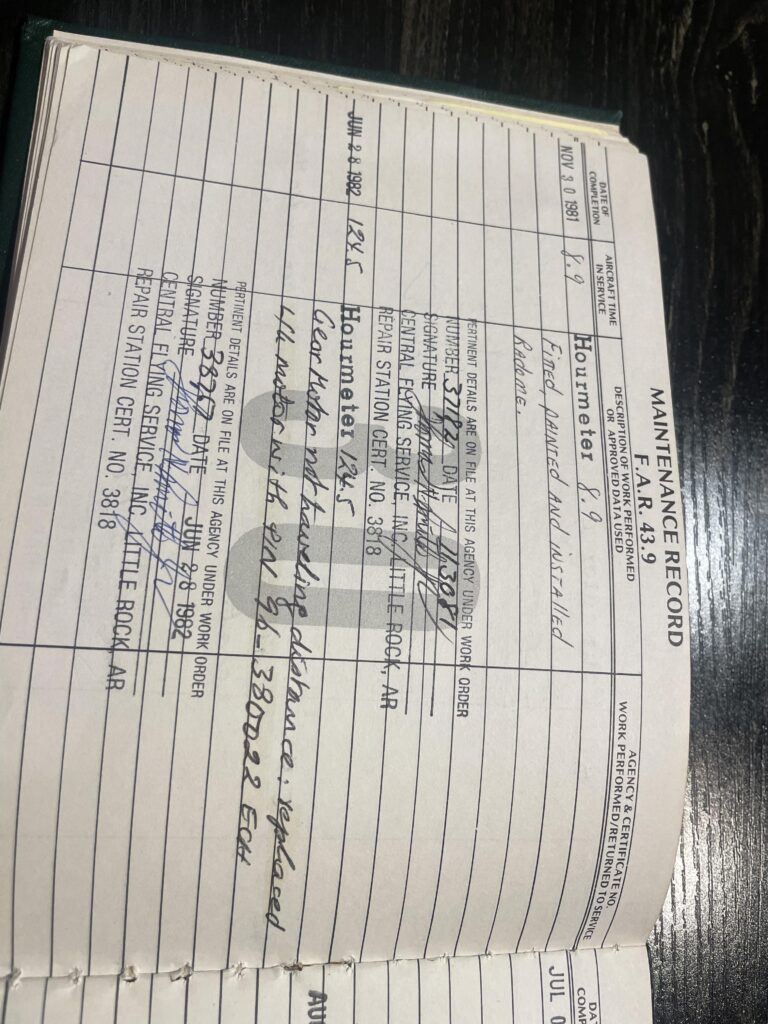 MAINTENANCE RECORD
F.A.R. 43.9
DATE OF COMPLETION
AIRCRAFT TIME IN SERVICE
DESCRIPTION OF WORK PERFORMED OR APPROVED DATA USED
AGENCY & CERTIFICATE NO. WORK PERFORMED/RETURNED TO SERVICE
NOV 30 1981 8.9 Hourmeter 8.9
Fitted, painted and installed
Radome.
PERTINENT DETAILS ARE ON FILE AT THIS AGENCY UNDER WORK ORDER
NUMBER 37182 DATE 113081
SIGNATURE
CENTRAL FLYING SERVICE, INC. LITTLE ROCK, AR
REPAIR STATION CERT. NO. 3818
JUN 28 1982 124.5 Hourmeter 124.5
Gear Motor not traveling distance: replaced
L/H motor with P/N 96-380022 ECH
PERTINENT DETAILS ARE ON FILE AT THIS AGENCY UNDER WORK ORDER
NUMBER 38767 DATE JUN 28 1982
SIGNATURE
CENTRAL FLYING SERVICE, INC. LITTLE ROCK, AR
REPAIR STATION CERT. NO. 3818
JUL 0
AU